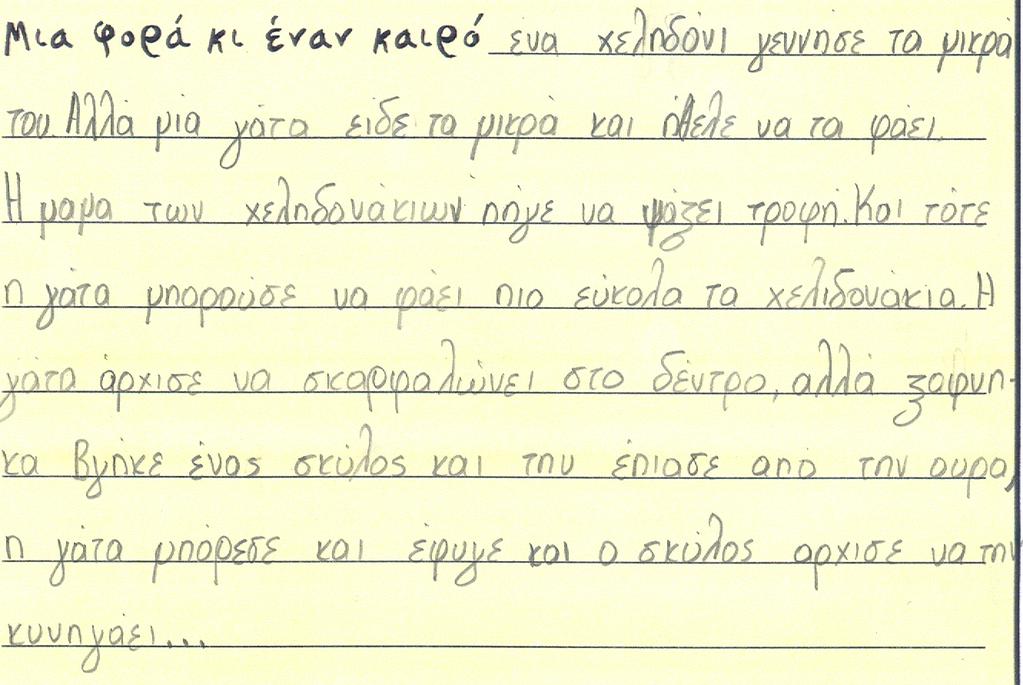 Μια φορά κι έναν καιρό ενα χεληδόνι γεννησε τα μικρά
του. Αλλά μια γάτα ειδε τα μικρά και ήθελε να τα φάει.
Η μαμα των χεληδονάκιων πήγε να ψάξει τροφή. Και τότε
η γάτα μπορούσε να φάει πιο εύκολα τα χελιδονάκια. Η
γάτα άρχισε να σκαρφαλώνει στο δέντρο, αλλά ξαιφνη-
κα βγήκε ένας σκύλος και την έπιασε από την ουρα,
η γάτα μπόρεσε και έφυγε και ο σκύλος αρχισε να την
κυνηγάει...